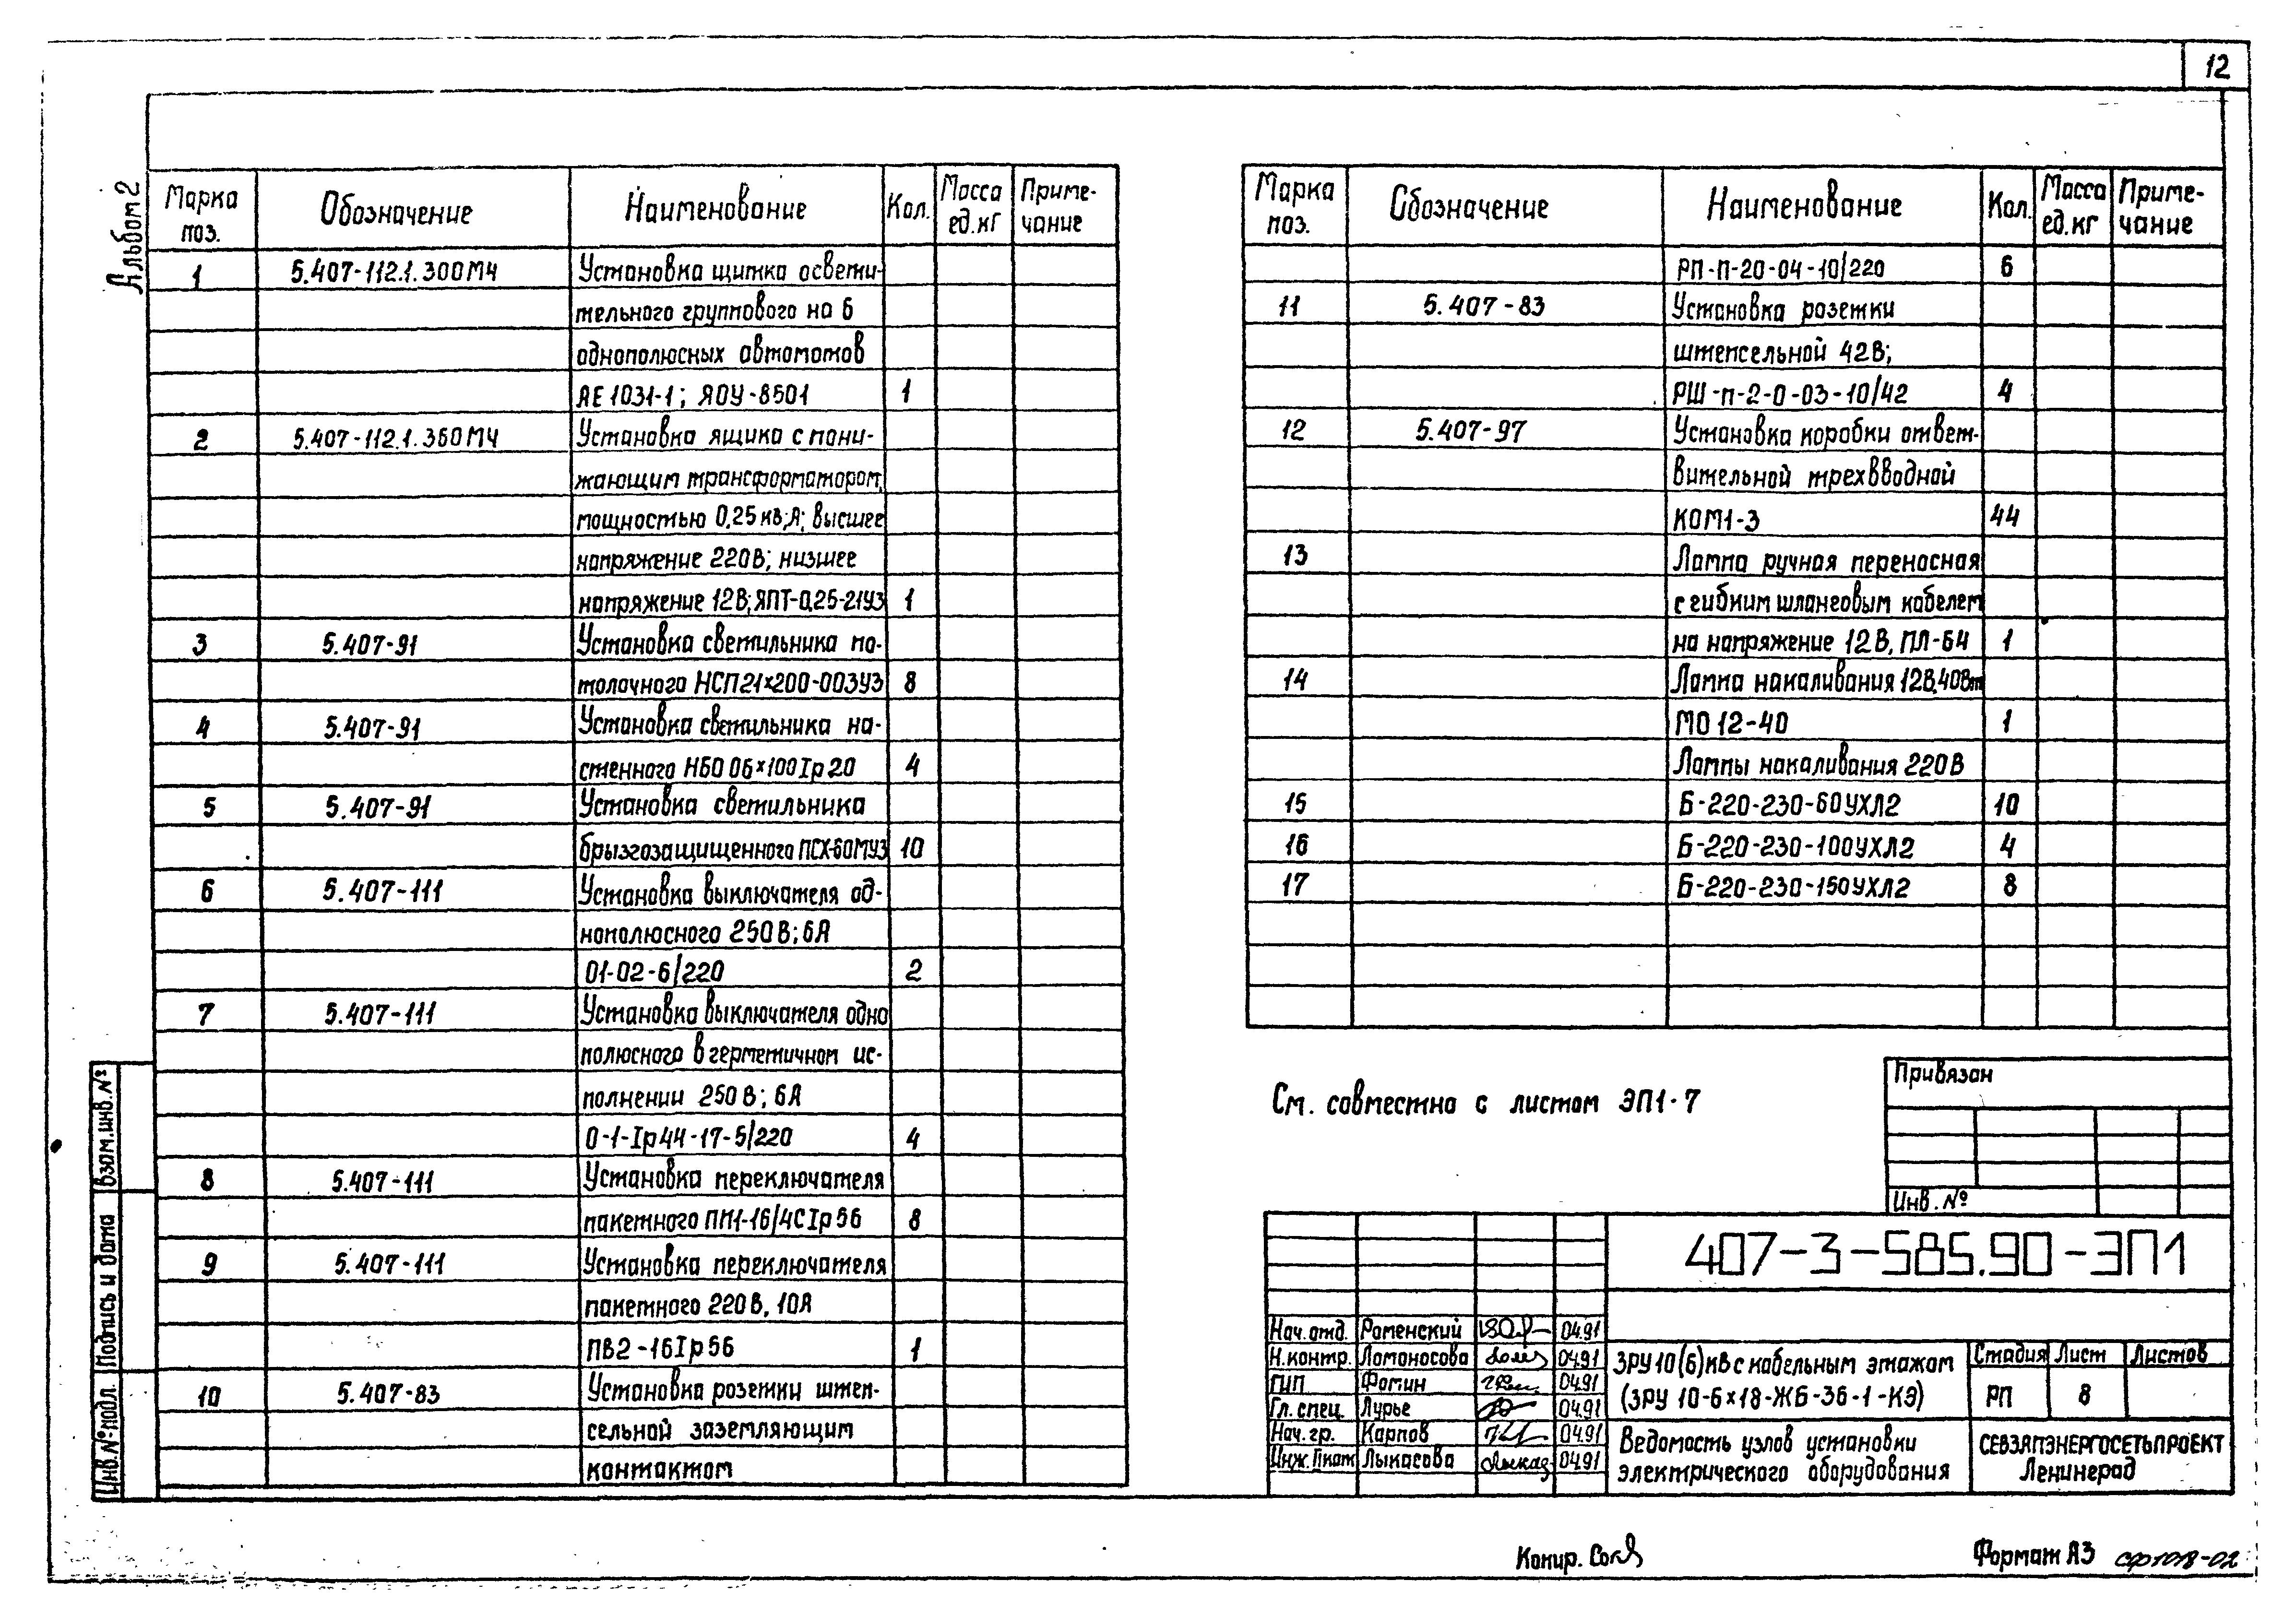 12
Альбом 2
Марка поз. Обозначение Наименование Кол. Масса ед.кг Приме-чание
1 5.407-112.1.300МЧ Установка щитка освети-
тельного группового на 6
однополюсных автоматов
АЕ 1031-1; ЯОУ-8501 1
2 5.407-112.1.360МЧ Установка ящика с пони-
жающим трансформатором,
мощностью 0,25 кв;А; высшее
напряжение 220В; низшее
напряжение 12В; ЯПТ-0,25-21У3 1
3 5.407-91 Установка светильника по-
толочного НСП21×200-003У3 8
4 5.407-91 Установка светильника на-
стенного НБО 06×100 Iр 20 4
5 5.407-91 Установка светильника
брызгозащищенного ПСХ-60МУ3 10
6 5.407-111 Установка выключателя од-
нополюсного 250В; 6А
01-02-6/220 2
7 5.407-111 Установка выключателя одно
полюсного в герметичном ис-
полнении 250В; 6А
0-1-Iр44-17-5/220 4
8 5.407-111 Установка переключателя
пакетного ПП1-16/4С Iр 56 8
9 5.407-111 Установка переключателя
пакетного 220В, 10А
ПВ2-16 Iр 56 1
10 5.407-83 Установка розетки штеп-
сельной заземляющим
контактом
Марка поз. Обозначение Наименование Кол. Масса ед.кг Приме-чание
РП-П-20-04-10/220 6
11 5.407-83 Установка розетки
штепсельной 42В;
РШ-п-2-0-03-10/42 4
12 5.407-97 Установка коробки ответ-
вительной трехвводной
КОМ1-3 44
13 Лампа ручная переносная
с гибким шланговым кабелем
на напряжение 12В, ПЛ-64 1
14 Лампа накаливания 12В,40Вт
МО 12-40 1
Лампы накаливания 220В
15 Б-220-230-60УХЛ2 10
16 Б-220-230-100УХЛ2 4
17 Б-220-230-150УХЛ2 8
См. совместно с листом ЭП1-7
Привязан
Инв. №
407-3-585.90-ЭП1
Нач. отд. Роменский 04.91
Н.контр. Ломоносова 04.91
ГИП Фомин 04.91
Гл. спец. Лурье 04.91
Нач. гр. Карпов 04.91
Инж. Пкат Лыкасова 04.91
ЗРУ 10(6)кВ с кабельным этажом
(ЗРУ 10-6×18-ЖБ-36-1-КЭ)
Ведомость узлов установки
электрического оборудования
Стадия Лист Листов
РП 8
СЕВЗАПЭНЕРГОСЕТЬПРОЕКТ
Ленинград
Взам.инв.№
Подпись и дата
Инв.№подл.
Копир.
Формат А3 сф1018-02